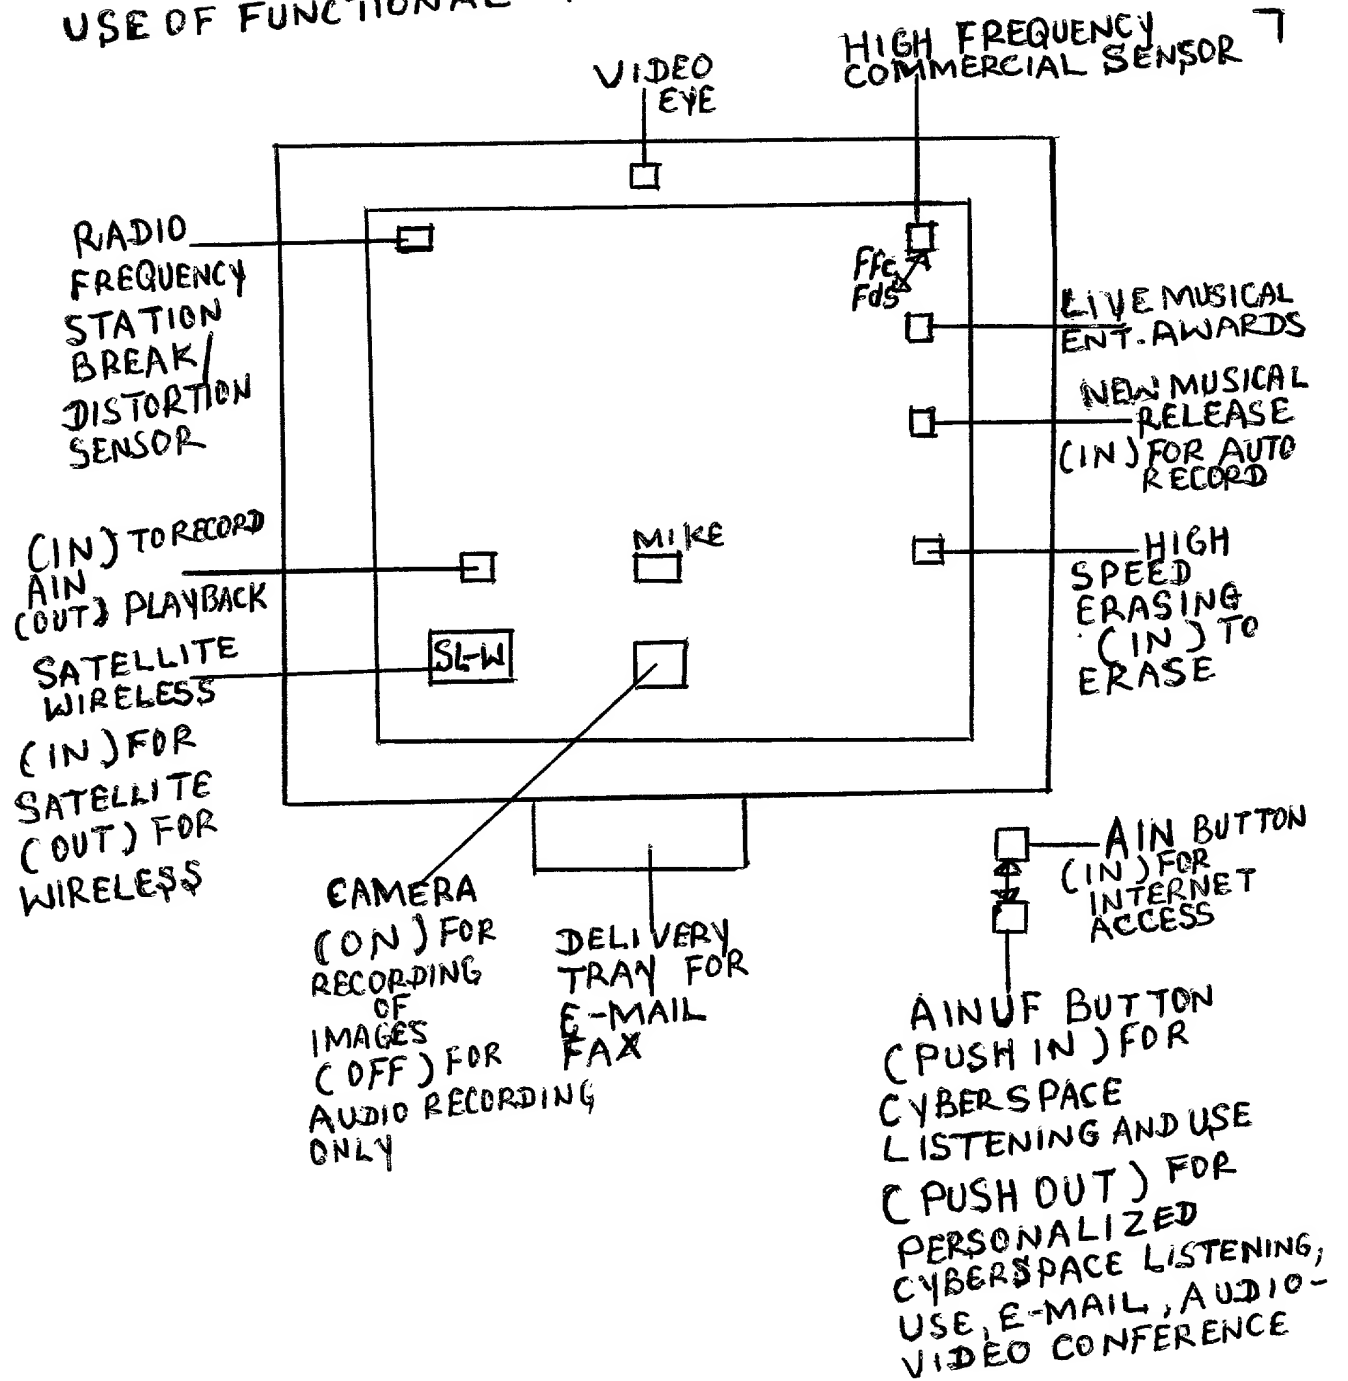 USE OF FUNCTIONAL
7
VIDEO
EYE
HIGH FREQUENCY
COMMERCIAL SENSOR
RADIO
FREQUENCY
STATION
BREAK/
DISTORTION
SENSOR
Ffc
Fds
LIVE MUSICAL
ENT. AWARDS
NEW MUSICAL
RELEASE
(IN) FOR AUTO
RECORD
(IN) TO RECORD
AIN
(OUT) PLAYBACK
MIKE
HIGH
SPEED
ERASING
(IN) TO
ERASE
SATELLITE
WIRELESS
(IN) FOR
SATELLITE
(OUT) FOR
WIRELESS
SL-W
CAMERA
(ON) FOR
RECORDING
OF
IMAGES
(OFF) FOR
AUDIO RECORDING
ONLY
DELIVERY
TRAY FOR
E-MAIL
FAX
AIN BUTTON
(IN) FOR
INTERNET
ACCESS
AINUF BUTTON
(PUSH IN) FOR
CYBERSPACE
LISTENING AND USE
(PUSH OUT) FOR
PERSONALIZED
CYBERSPACE LISTENING,
USE, E-MAIL, AUDIO-
VIDEO CONFERENCE